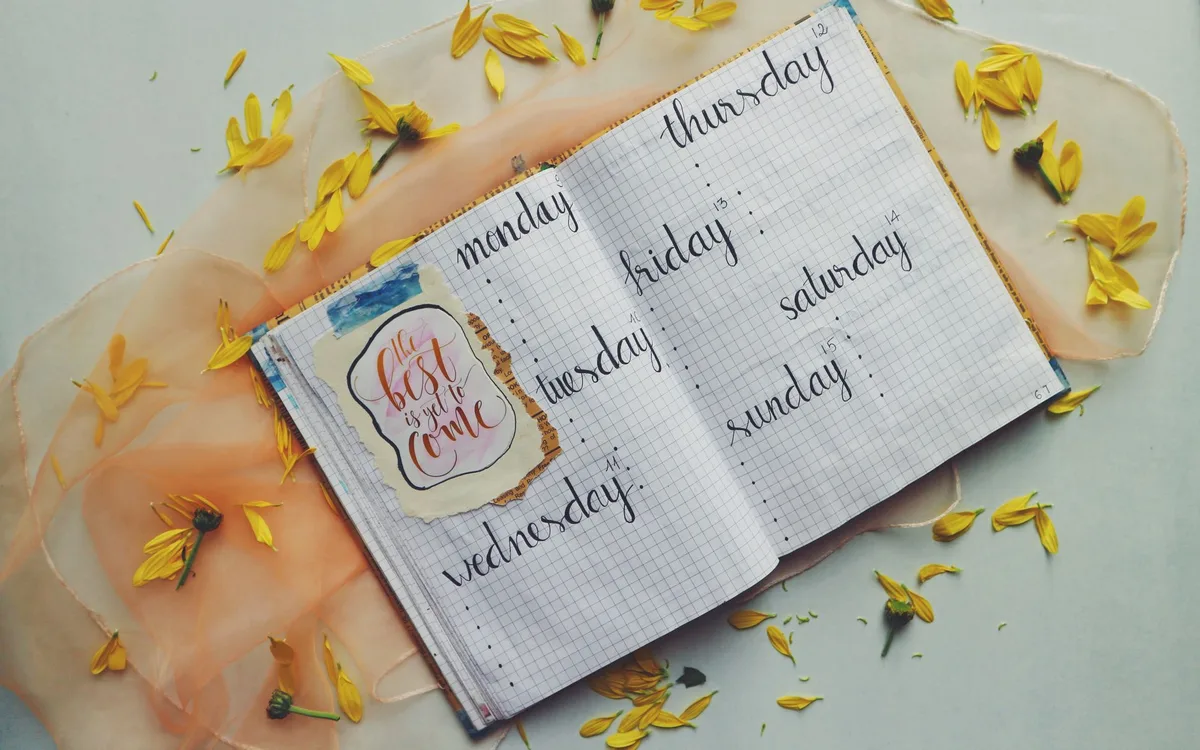 monday 9
the
best
is yet to
come
tuesday 10
wednesday 11
thursday 12
friday 13
saturday 14
sunday 15
67